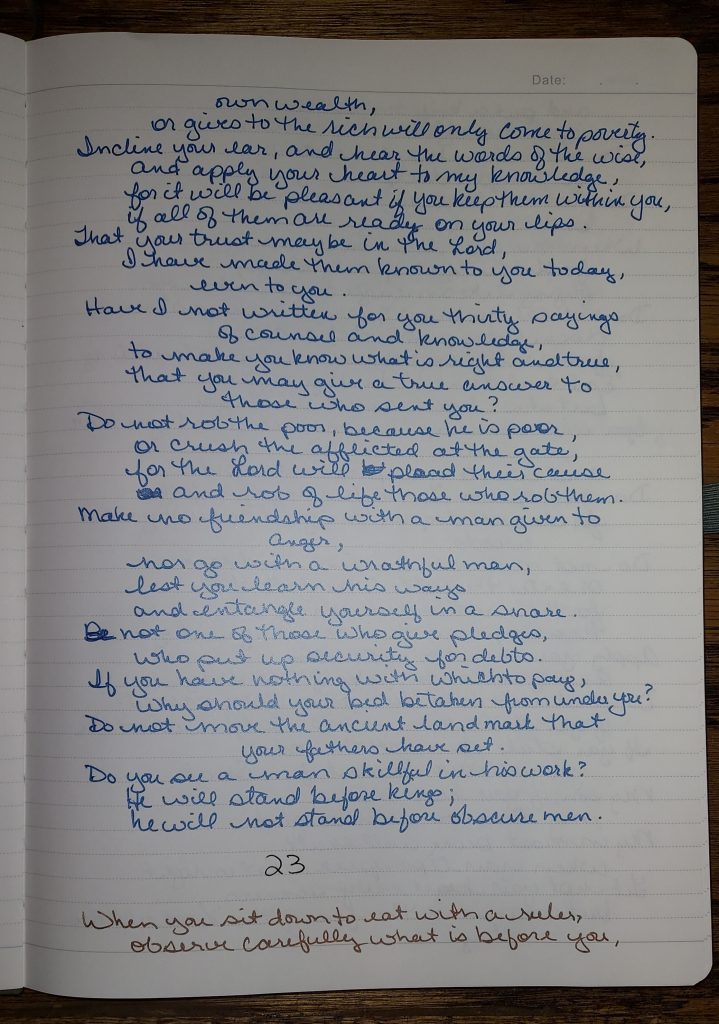 Date:
own wealth,
or gives to the rich will only come to poverty.
Incline your ear, and hear the words of the wise,
and apply your heart to my knowledge,
for it will be pleasant if you keep them within you,
if all of them are ready on your lips.
That your trust may be in the Lord,
I have made them known to you today,
even to you.
Have I not written for you thirty sayings
of counsel and knowledge,
to make you know what is right and true,
that you may give a true answer to
those who sent you?
Do not rob the poor, because he is poor,
or crush the afflicted at the gate,
for the Lord will plead their cause
and rob of life those who rob them.
Make no friendship with a man given to
anger,
nor go with a wrathful man,
lest you learn his ways
and entangle yourself in a snare.
Be not one of those who give pledges,
who put up security for debts.
If you have nothing with which to pay,
why should your bed be taken from under you?
Do not move the ancient landmark that
your fathers have set.
Do you see a man skillful in his work?
He will stand before kings;
he will not stand before obscure men.
23
When you sit down to eat with a ruler,
observe carefully what is before you,